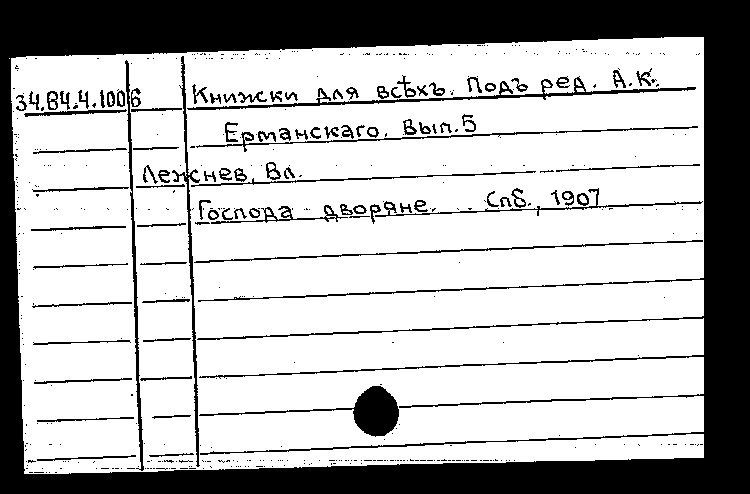 34.84.4.1006 Книжски для всѣхъ. Подъ ред. А.К.
Ерманскаго. Вып.5
Лежнев, Вл.
Господа дворяне. Спб., 1907